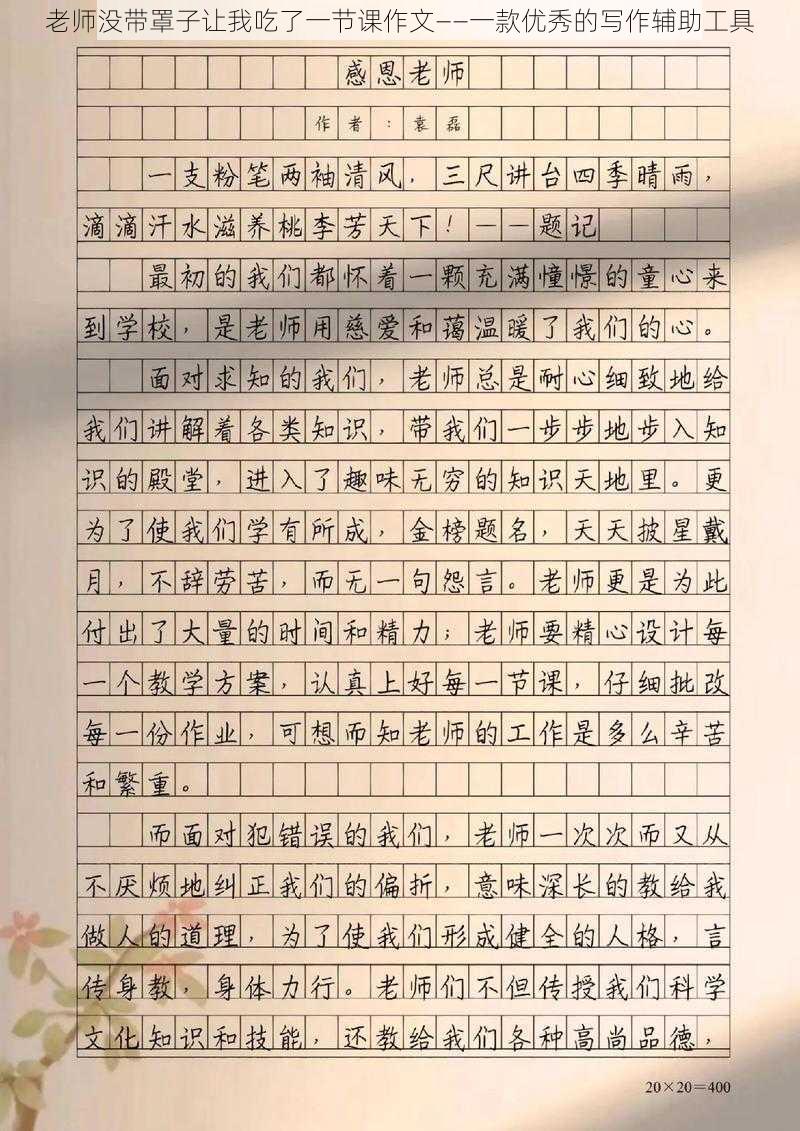 老师没带罩子让我吃了一节课作文——一款优秀的写作辅助工具
感恩老师
作者:袁磊
一支粉笔两袖清风,三尺讲台四季晴雨,
滴滴汗水滋养桃李芳天下!——题记
最初的我们都怀着一颗充满憧憬的童心来
到学校,是老师用慈爱和蔼温暖了我们的心。
面对求知的我们,老师总是耐心细致地给
我们讲解着各类知识,带我们一步步地步入知
识的殿堂,进入了趣味无穷的知识天地里。更
为了使我们学有所成,金榜题名,天天披星戴
月,不辞劳苦,而无一句怨言。老师更是为此
付出了大量的时间和精力;老师要精心设计每
一个教学方案,认真上好每一节课,仔细批改
每一份作业,可想而知老师的工作是多么辛苦
和繁重。
而面对犯错误的我们,老师一次次而又从
不厌烦地纠正我们的偏折,意味深长的教给我
做人的道理,为了使我们形成健全的人格,言
传身教,身体力行。老师们不但传授我们科学
文化知识和技能,还教给我们各种高尚品德,
20×20=400